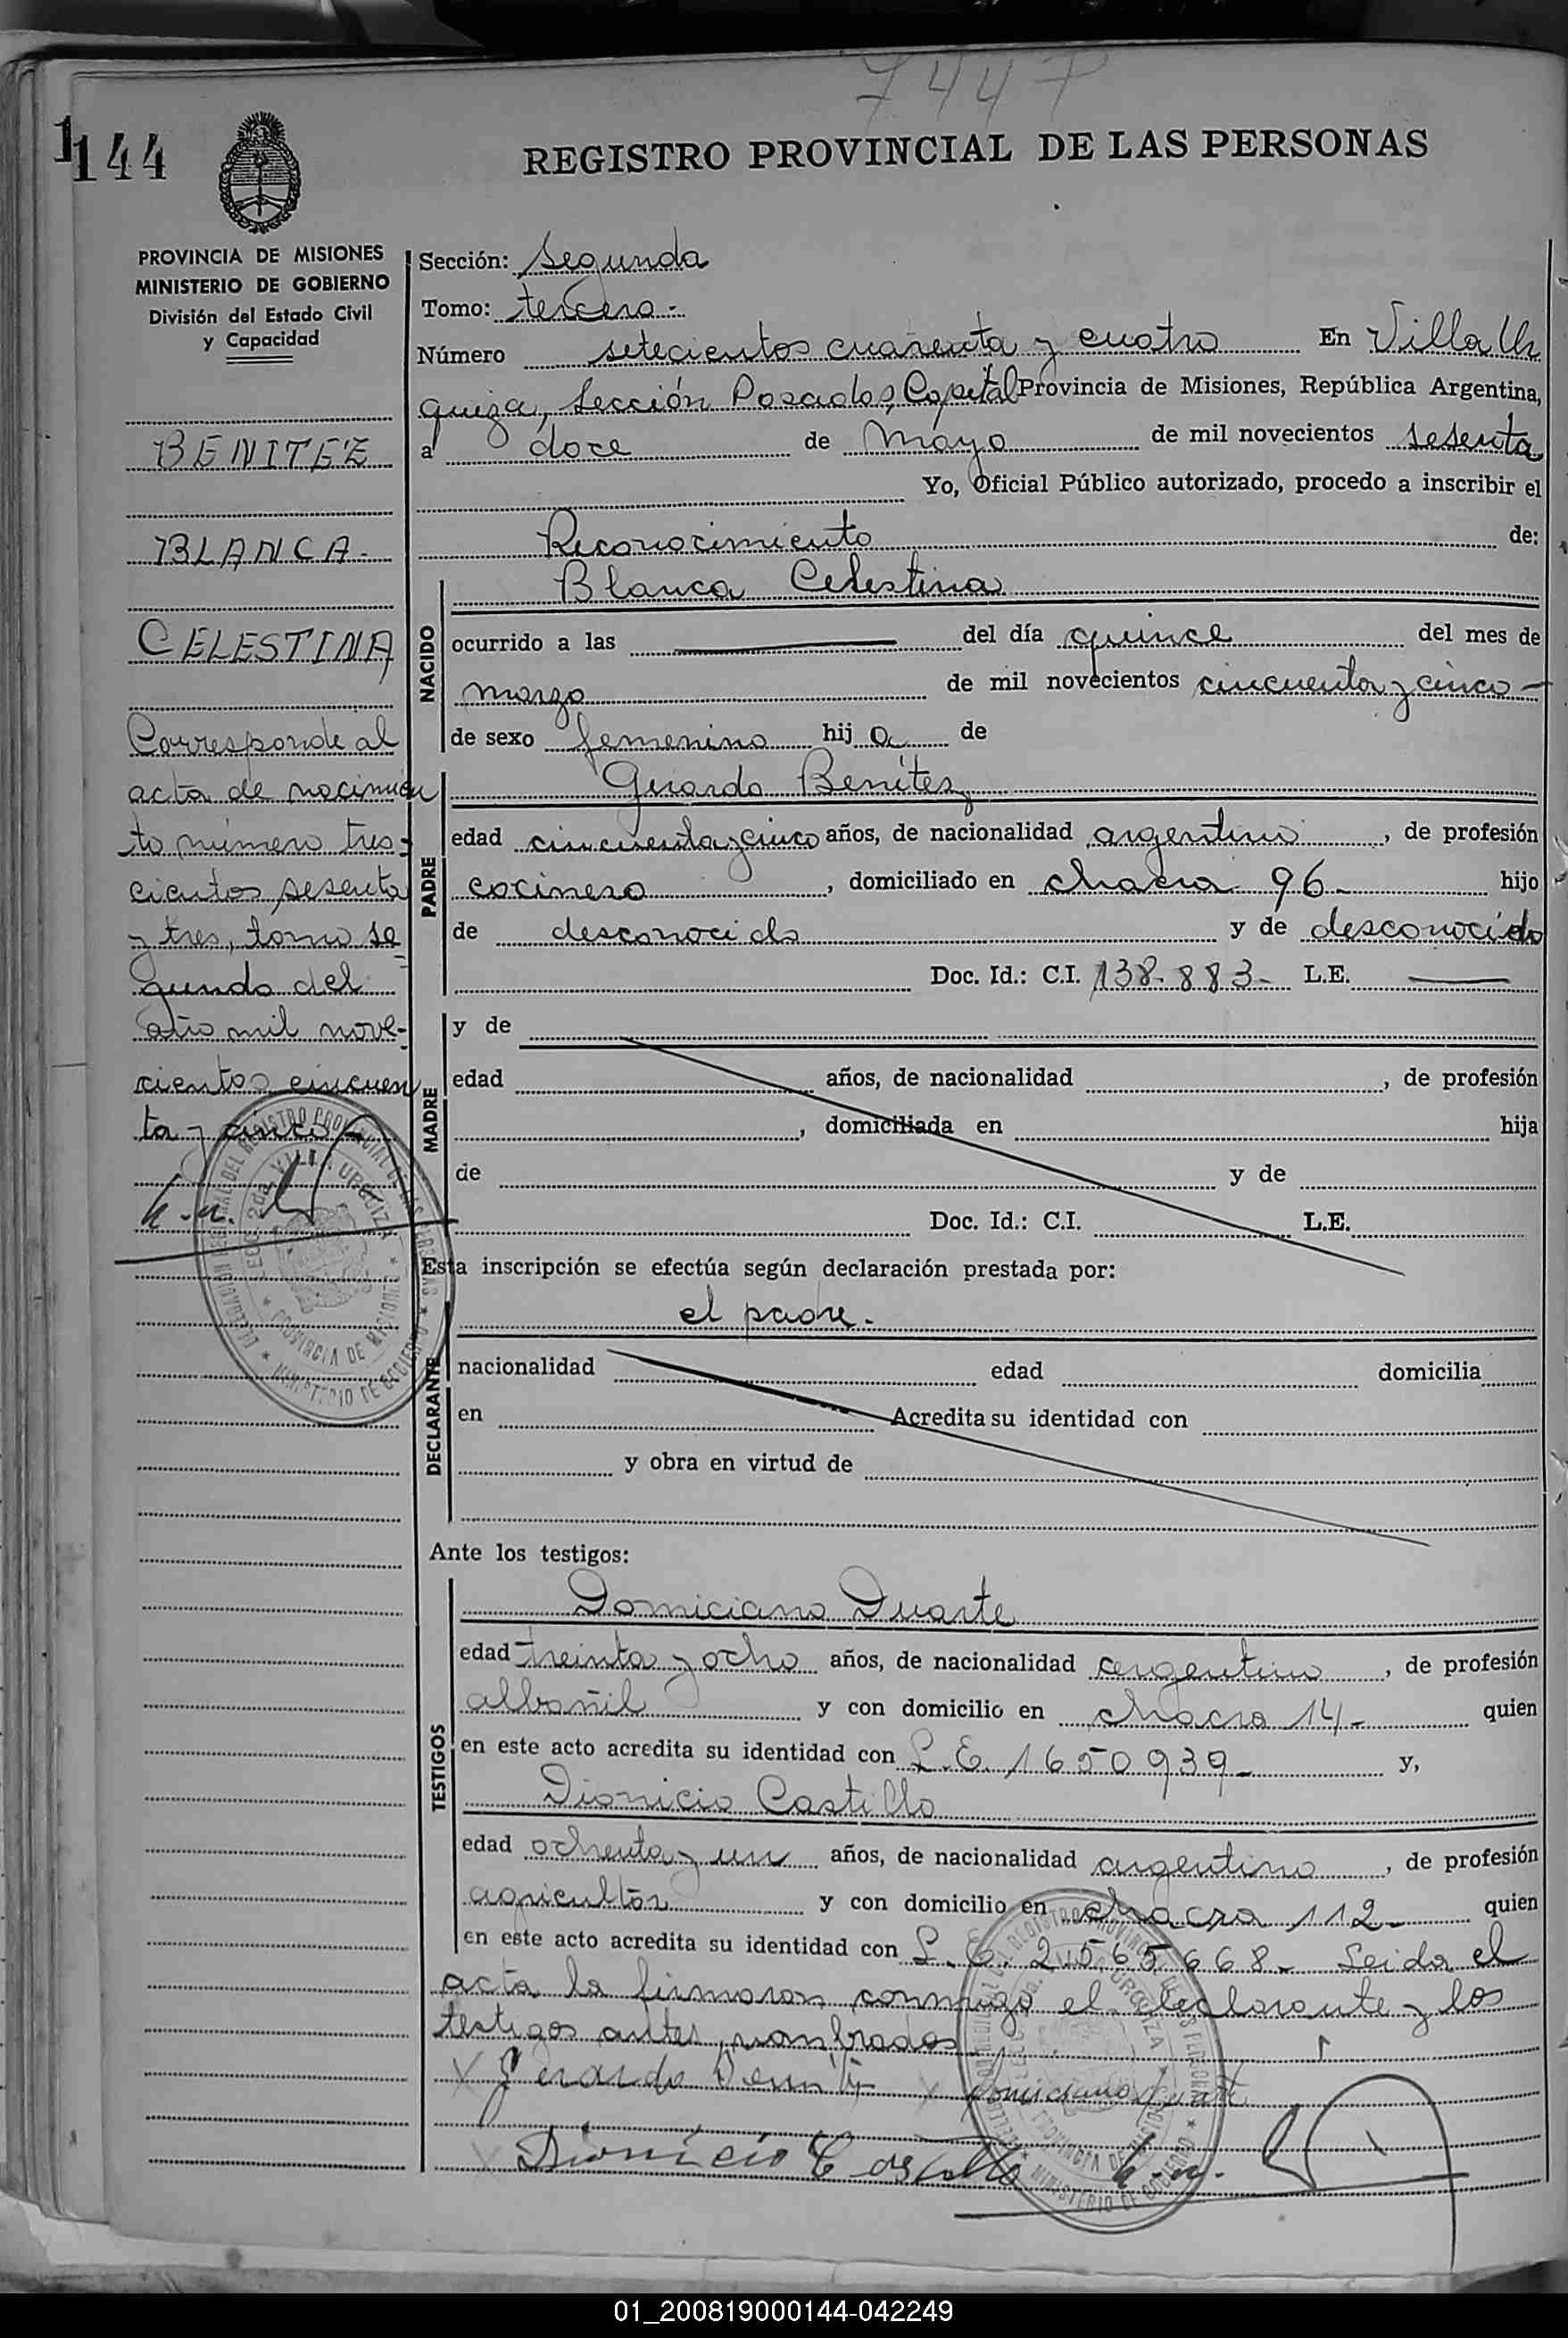 7447
1144
REGISTRO PROVINCIAL DE LAS PERSONAS
PROVINCIA DE MISIONES
MINISTERIO DE GOBIERNO
División del Estado Civil
y Capacidad
BENITEZ
BLANCA.
CELESTINA
Corresponde al
acta de nacimien
to número tres-
cientos sesenta
y tres, tomo se
gundo del
año mil nove-
cientos cincuen
ta y cinco-
Sección: Segunda
Tomo: tercero-
Número setecientos cuarenta y cuatro En Villa Ur
quiza, Sección Posadas, Capital Provincia de Misiones, República Argentina,
a doce de Mayo de mil novecientos sesenta
Yo, Oficial Público autorizado, procedo a inscribir el
Reconocimiento de:
Blanca Celestina
NACIDO
ocurrido a las del día quince del mes de
marzo de mil novecientos cincuenta y cinco-
de sexo femenino hij a de
PADRE
Gerardo Benítez
edad cincuenta y cinco años, de nacionalidad argentino, de profesión
cocinero, domiciliado en chacra 96- hijo
de desconocido y de desconocido
Doc. Id.: C.I. 138.883- L.E.
MADRE
y de
edad años, de nacionalidad , de profesión
, domiciliada en hija
de y de
Doc. Id.: C.I. L.E.
Esta inscripción se efectúa según declaración prestada por:
el padre.
DECLARANTE
nacionalidad edad domicilia
en Acredita su identidad con
y obra en virtud de
Ante los testigos:
TESTIGOS
Domiciano Duarte
edad treinta y ocho años, de nacionalidad argentino, de profesión
albañil y con domicilio en chacra 14- quien
en este acto acredita su identidad con L.E. 1650939- y,
Dionicio Castillo
edad ochenta y un años, de nacionalidad argentino, de profesión
agricultor y con domicilio en chacra 112- quien
en este acto acredita su identidad con L.E. 2565668- Leida el
acta la firmaron conmigo el declarante y los
testigos antes nombrados
Gerardo Benitez Domiciano Duarte
Dionicio Castillo
01_200819000144-042249